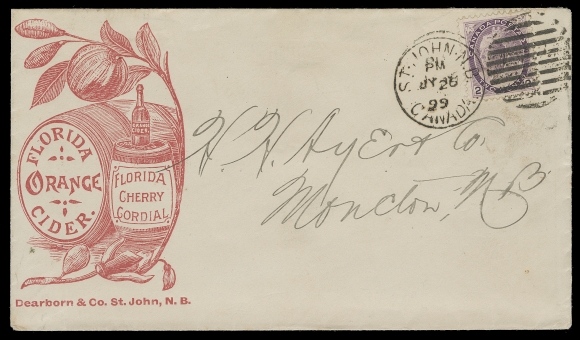 FLORIDA
ORANGE
CIDER.
ORANGE
CIDER.
FLORIDA
CHERRY
CORDIAL
Dearborn & Co. St. John, N. B.
ST. JOHN. N.B.
PM
26
99
CANADA
CANADA POSTAGE
2
H. H. Ayer & Co.
Moncton, N.B.